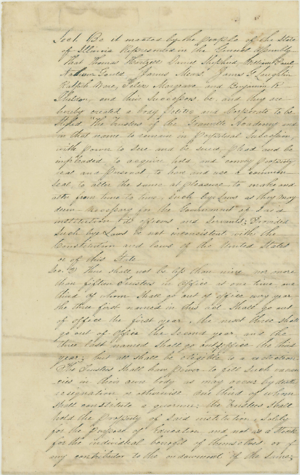 Sec 1. Be it enacted by the people of the State
of Illinois Represented in the General Assembly
That Thomas
James
Ralph Ware, Felix and Benjamin
and their Successors be, and they are
hereby created a body Politic and Corporate to be
Styled "The Trustees of the Academy and
by that name to remain in Perpetual Succession
with power to sue and be sued, plead and be
impleaded, to acquire hold and convey property
real and personal to have and use a common
Seal to alter the same at pleasure to make and
alter from time to time, Such by Laws as they may
deem necessary for the Government of Said
institution its officers and Servants, Provided
Such by Laws be not inconsistent with the
Constitution and laws of the United States
or of this State
Sec 2 There shall not be less than nine nor more
than fifteen Trustees in Office at one time, one
third of whom Shall go out of office every year
the three first named in this Act Shall go out
of office the first year, the next three shall
go out of office the Second year and the
three last named Shall go out office the third
year, but all shall be eligible to a
The Trustees Shall have power to fill Such vacan
cies in their own body as may occur by death
resignation or otherwise. One third of whom
shall constitute a quorum, the trustees Shall
hold the property of Said institution, Solely
for the purposes of Education and not as a Stock
for the individual benefit of themselves or of
any contributor to the endowment of the Same,